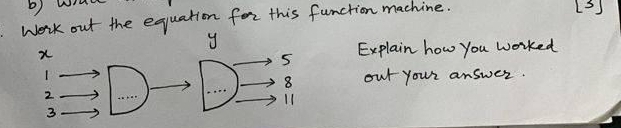 b)
[3]
Work out the equation for this function machine.
x y
1 ..... .... 5
2 8
3 11
Explain how you worked
out your answer.